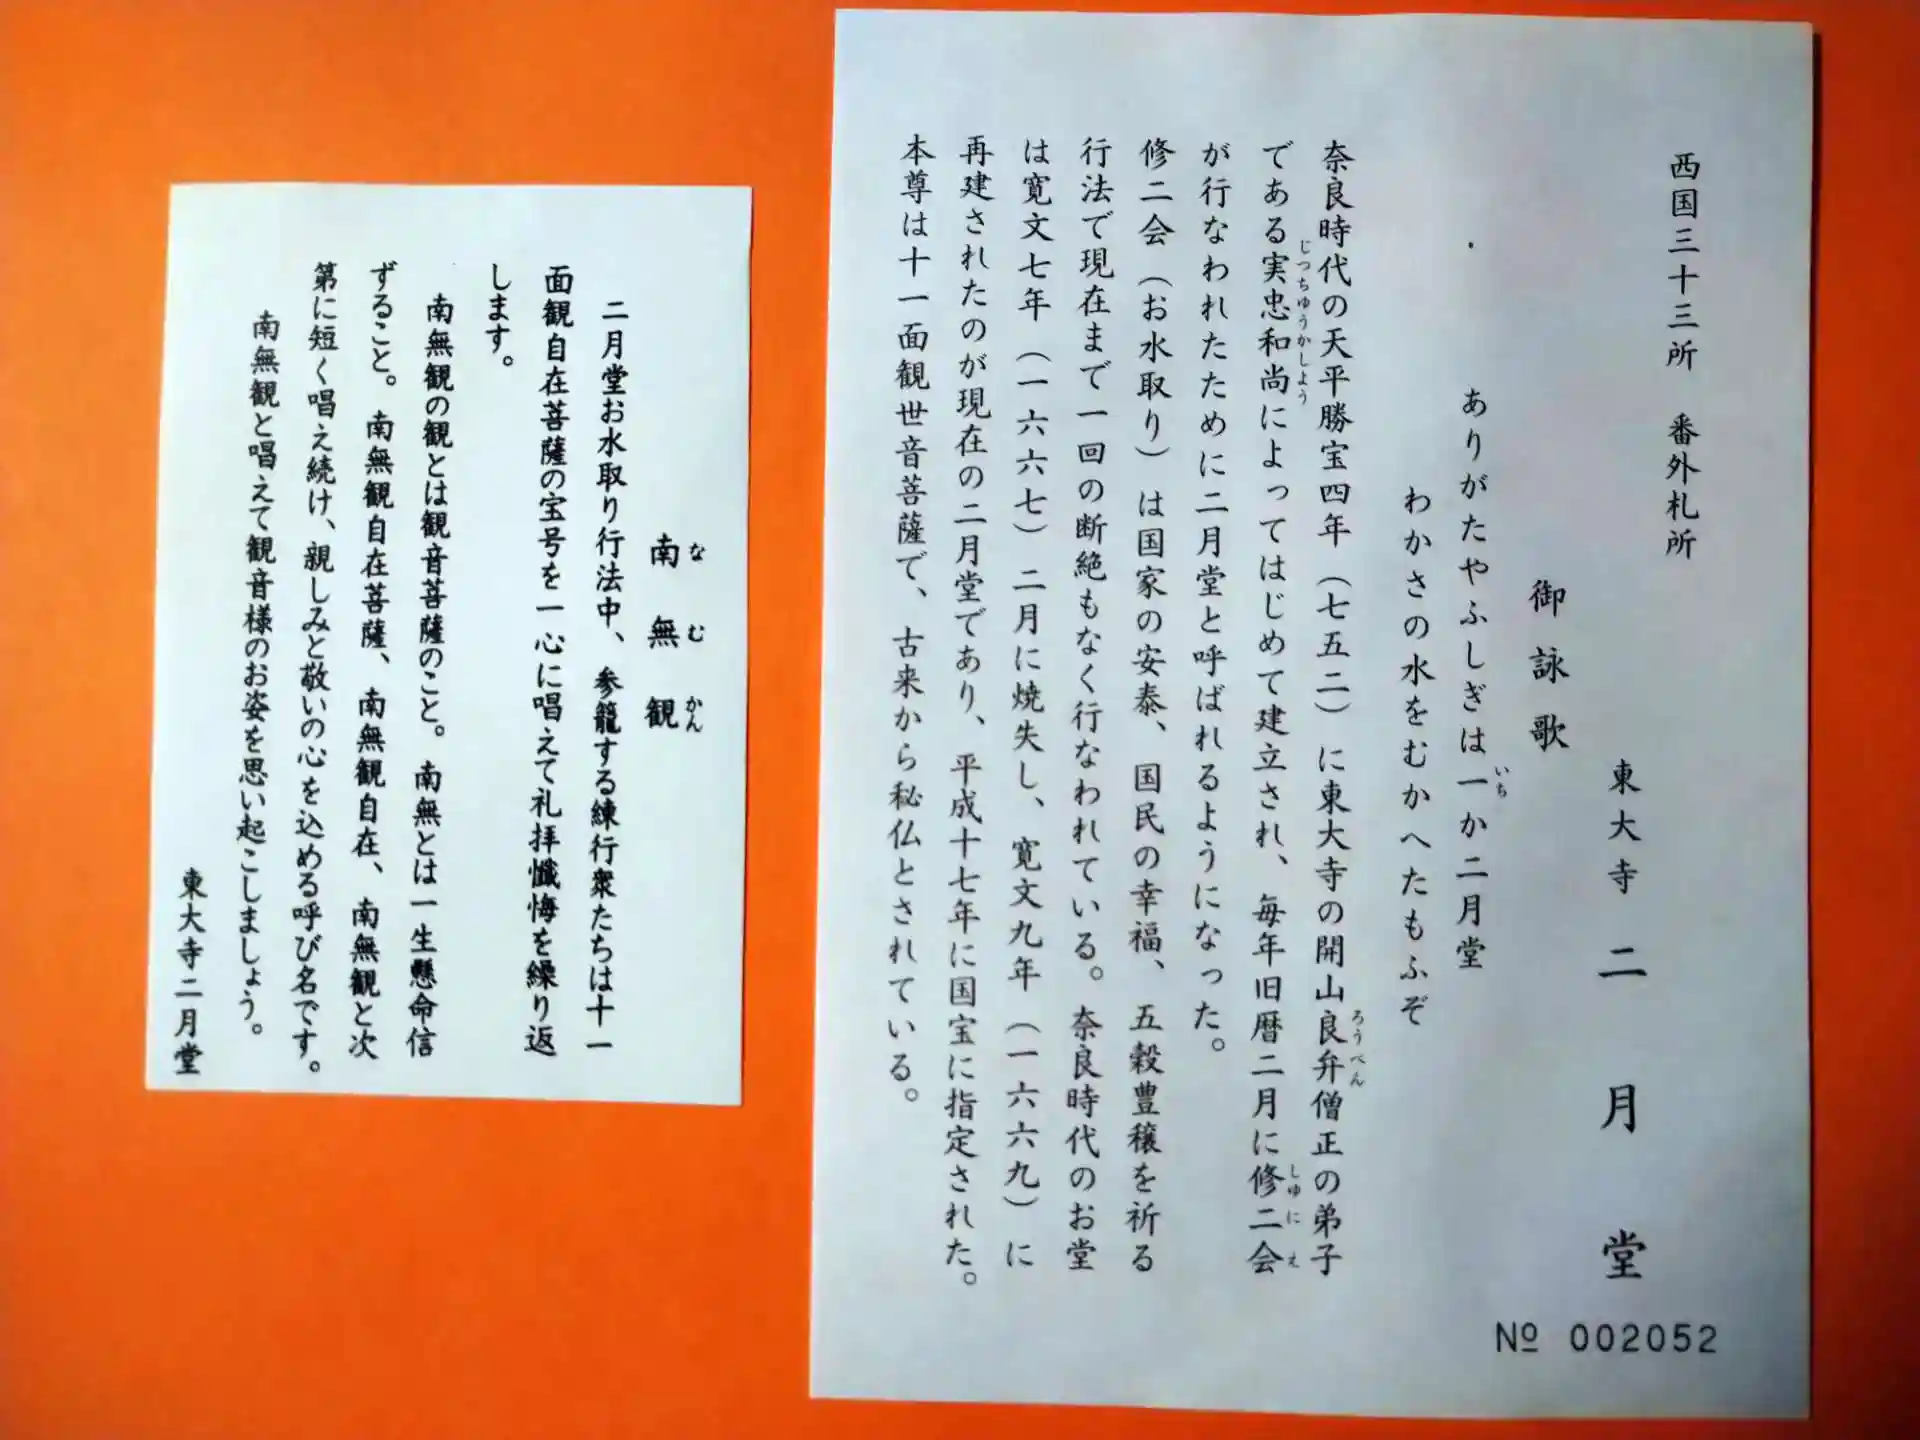 西国三十三所　番外札所
東大寺 二月堂
御詠歌
ありがたやふしぎは一か二月堂
いち
わかさの水をむかへたもふぞ
奈良時代の天平勝宝四年（七五二）に東大寺の開山良弁僧正の弟子
ろうべん
である実忠和尚によってはじめて建立され、毎年旧暦二月に修二会
じつちゆうかしよう
しゆにえ
が行なわれたために二月堂と呼ばれるようになった。
修二会（お水取り）は国家の安泰、国民の幸福、五穀豊穣を祈る
行法で現在まで一回の断絶もなく行なわれている。奈良時代のお堂
は寛文七年（一六六七）二月に焼失し、寛文九年（一六六九）に
再建されたのが現在の二月堂であり、平成十七年に国宝に指定された。
本尊は十一面観世音菩薩で、古来から秘仏とされている。
№ 002052
南無観
なむかん
二月堂お水取り行法中、参籠する練行衆たちは十一
面観自在菩薩の宝号を一心に唱えて礼拝懺悔を繰り返
します。
南無観の観とは観音菩薩のこと。南無とは一生懸命信
ずること。南無観自在菩薩、南無観自在、南無観と次
第に短く唱え続け、親しみと敬いの心を込める呼び名です。
南無観と唱えて観音様のお姿を思い起こしましょう。
東大寺二月堂